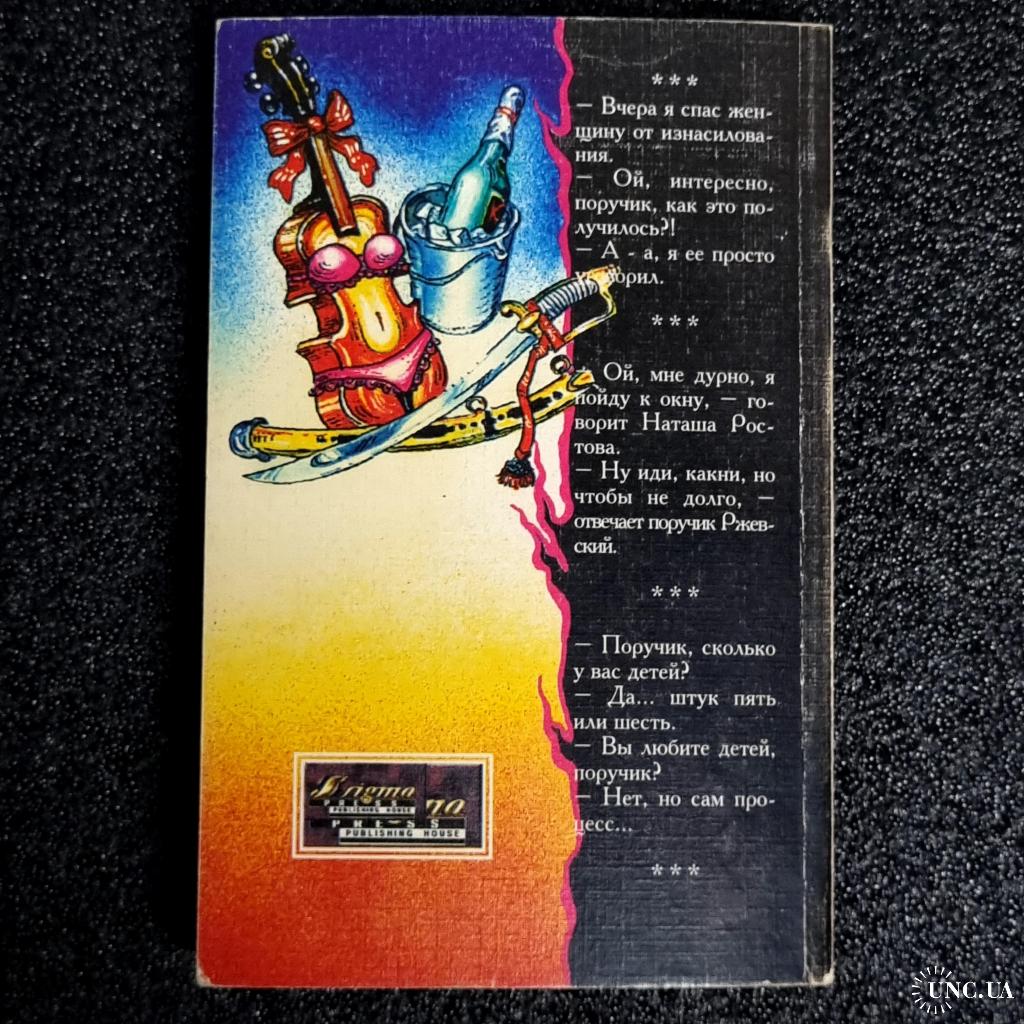 * * *
— Вчера я спас жен-
щину от изнасилова-
ния.
— Ой, интересно,
поручик, как это по-
лучилось?!
— А - а, я ее просто
уговорил.
* * *
Ой, мне дурно, я
пойду к окну, — го-
ворит Наташа Рос-
това.
— Ну иди, какни, но
чтобы не долго, —
отвечает поручик Ржев-
ский.
* * *
— Поручик, сколько
у вас детей?
— Да... штук пять
или шесть.
— Вы любите детей,
поручик?
— Нет, но сам про-
цесс...
* * *
PRESS
PUBLISHING HOUSE
PRESS
PUBLISHING HOUSE
UNC.UA